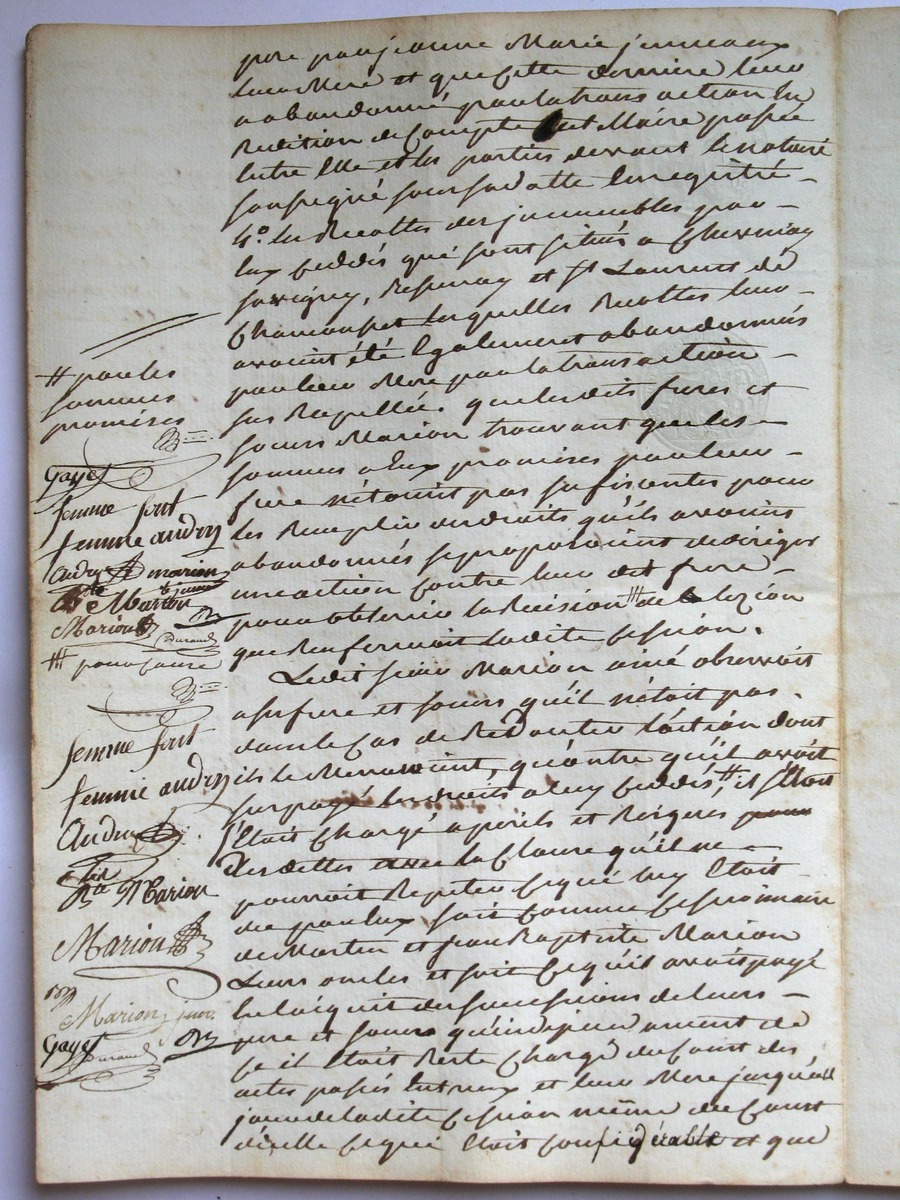 pere par jeanne Marie jumeaux
leur Mere et que cette derniere leur
a abandonné par la transaction en
Redition de Compte et Moire passée
Entre Elle et les parties devant le notaire
soussigné sous sa datte Enregistré –
4.o les Recoltes des jmmeubles par –
Eux Ceddés qui sont situés a Chevenay
savigny, Respenay et st Laurent de
Chamousset lesquelles Recoltes leur –
avoient été Egalement abandonnées
par leur Mere par la transaction –
sus Rapellée. que lesdits freres et
soeurs Marion trouvant que les –
sommes a Eux promises par leur –
frere n'étoient pas sufisentes pour
les Remplir des droits qu'ils avoient
abandonnés se proposoient de diriger
une action Contre leur dit frere –
pour obtenir la Récision # de lezion
que Renfermoit ladite Cession.
Ledit sieur Marion ainé observoit
a ses frere et soeurs qu'il n'étoit pas
dans le Cas de Redouter l'action dont
ils le Menaçoient, qu'outre qu'il avoit
surpayé les droits a luy Ceddés #, il s'étoit
s'Etoit Chargé a perils et Risques pour
des dettes avec la Clause qu'il ne –
pourroit Repeter Ce qui luy Etoit
du par Eux soit Comme Cessionnaire
de Martin et jean Baptiste Marion
Leurs oncles et soit Ce qu'il avoit payé
en l'acquit des successions de leurs –
pere et soeur qu'independament de
Ce il Etoit Resté Chargé du Cout des
actes passés Entreux et leur Mere jusqu'au
jour de ladite Cession même du Cout
d'icelle Ce qui Etoit Considérable et que
# par les
sommes
promises
Gayet
femme fort
femme audry
audry marion
Bte Marion
Marion
Durand
# pour cause
femme fort
femme audry
Audry
Bte Marion
Marion
Marion jeu.
Gayet
Durand